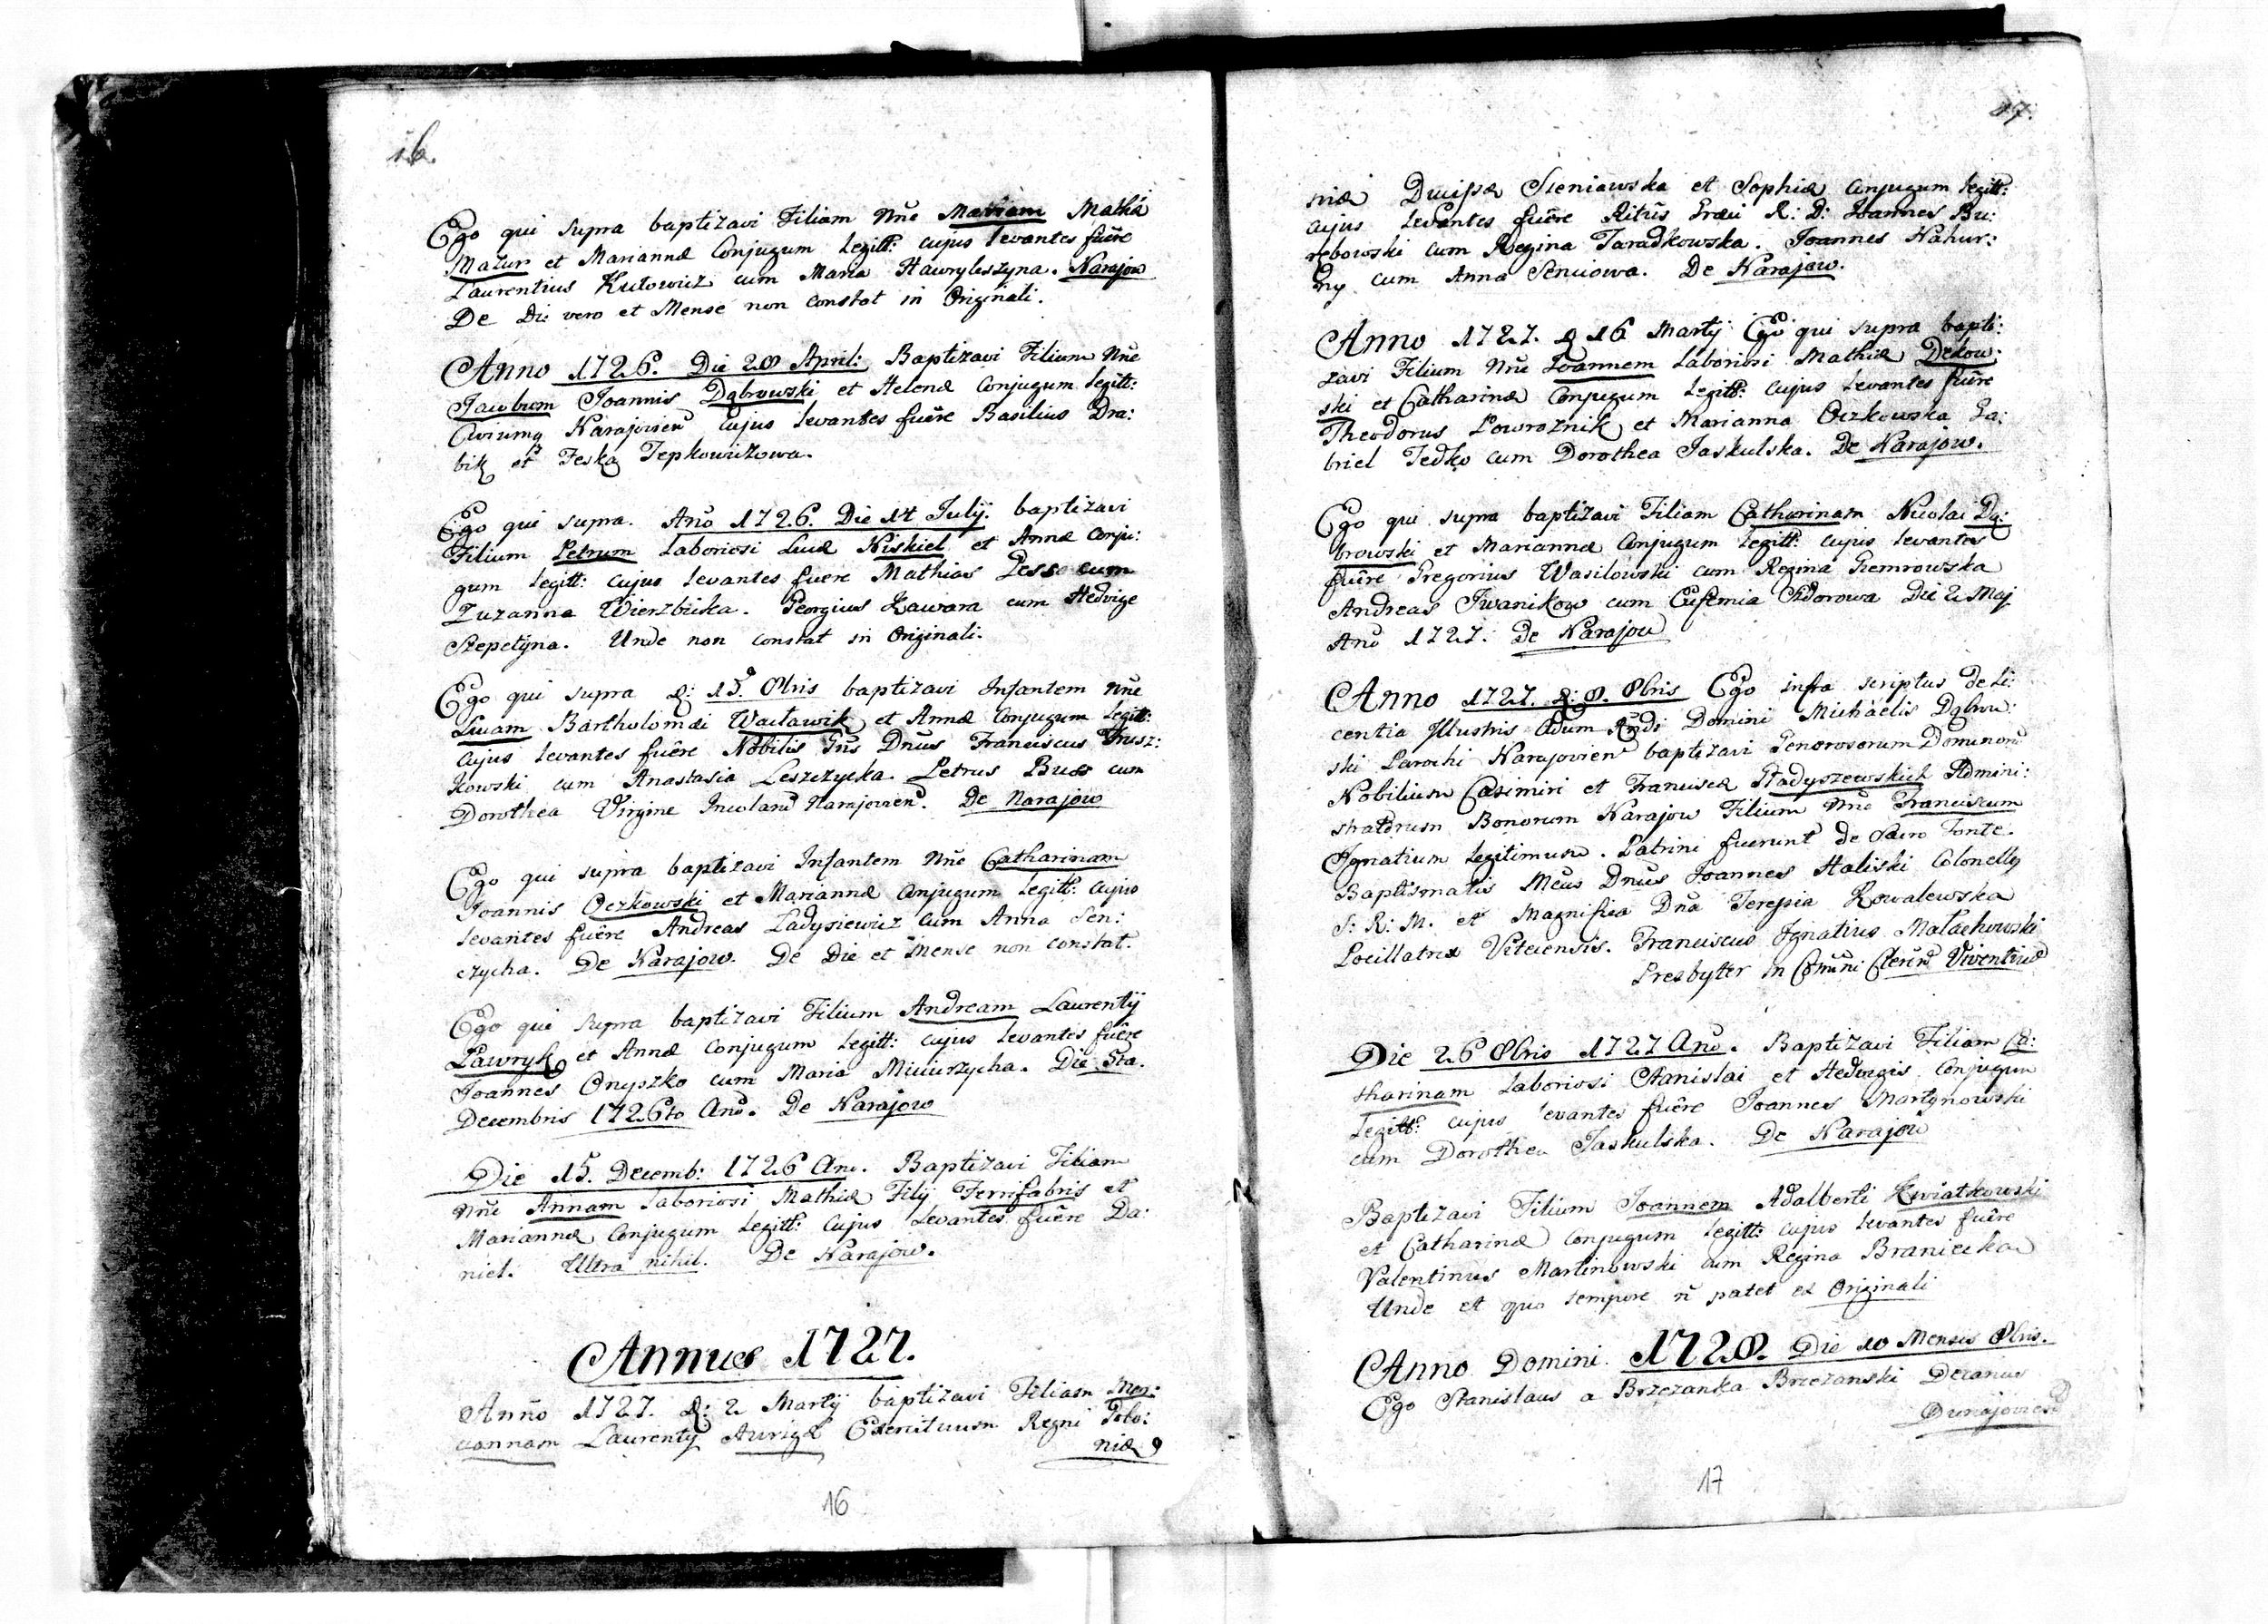 16.
Ego qui supra baptizavi Filiam Nne Mariam Mathiæ
Mazur et Mariannæ Conjugum legitt: cujus levantes fuêre
Laurentius Kutowicz cum Maria Hawryleszyna. Narajow
De Die vero et Mense non constat in Originali.
Anno 1726. Die 28 April: Baptizavi Filium Nne
Jacobum Joannis Dąbrowski et Helenæ Conjugum legitt:
Civium Narajovien cujus levantes fuêre Basilius Dra:
bik et Feska Tepkowiczowa.
Ego qui supra. Año 1726. Die 14 Julij. baptizavi
Filium Petrum Laboriosi Lucæ Niskiel et Annæ Conju:
gum legitt: cujus levantes fuere Mathias Pess cum
Zuzanna Wierzbicka. Georgius Zawara cum Hedvige
Szepetyna. Unde non constat in Originali.
Ego qui supra d: 15. 8bris baptizavi Infantem Nne
Lucam Bartholomæi Wacławik et Annæ Conjugum legitt:
cujus levantes fuêre Nobilis Gñs Dñus Franciscus Trusz:
kowski cum Anastasia Leszczycka. Petrus Buss cum
Dorothea Virgine Incolanū Narajovien. De Narajow
Ego qui supra baptizavi Infantem Nne Catharinam
Joannis Oczkowski et Mariannæ Conjugum legitt: cujus
levantes fuêre Andreas Ladysiewicz cum Anna Sen:
czycha. De Narajow. De Die et Mense non constat.
Ego qui supra baptizavi Filium Andream Laurentij
Pawryk et Annæ Conjugum legitt: cujus levantes fuêre
Joannes Onyszko cum Maria Miciurzycha. Die 5ta.
Decembris 1726to Año. De Narajow
Die 15. Decemb: 1726 Ano. Baptizavi Filiam
Nne Annam Laboriosi Mathiæ Filij Ferrifabris et
Mariannæ Conjugum legitt: cujus levantes fuêre Da:
niel. Ultra nihil. De Narajow.
Annus 1727.
Anño 1727. d: 2 Martij baptizavi Filiam Mar:
iannam Laurentij Aurigæ Exercituum Regni Polo:
niæ
16
17.
niæ Ducissæ Sieniawska et Sophiæ Conjugum legitt:
cujus levantes fuêre Ritûs Græci R: D: Joannes Bu:
rebowski cum Regina Taradkowska. Joannes Nahur:
ny cum Anna Seniowa. De Narajow.
Anno 1727. d 16 Martij Ego qui supra bapti:
zavi Filium Nne Joannem Laboriosi Mathiæ Dedow:
ski et Catharinæ Conjugum legitt: cujus levantes fuêre
Theodorus Powroznik et Marianna Oczkowska Ga:
briel Fedko cum Dorothea Jaskulska. De Narajow.
Ego qui supra baptizavi Filiam Catharinam Nicolai Dą:
browski et Mariannæ Conjugum legitt: cujus levantes
fuêre Gregorius Wasilowski cum Regina Gremrowska
Andreas Iwanikow cum Eufemia Sidorowa Die 2 Maj
Año 1727. De Narajow
Anno 1727. d: 8. 8bris Ego infra scriptus de Li:
centia Illustris Adum Rndi Domini Michäelis Dąbrow:
ski Parochi Narajovien baptizavi Generosorum Dominorū
Nobilium Casimiri et Franciscæ Stadyszewskich Admini:
stratorum Bonorum Narajow Filium Nne Franciscum
Ignatium legitimum. Patrini fuerunt de Sacro Fonte.
Baptismatis Mcus Dnus Joannes Haliski Colonellg
S: R: M. et Magnifica Dña Teressia Kowalewska
Pocillatrix Viteciensis. Franciscus Ignatius Małachowski
Presbyter in Comuni Clericū Viventiū
Die 26 8bris 1727 Año. Baptizavi Filiam Ca:
tharinam Laboriosi Stanislai et Hedvigis Conjugum
legitt: cujus levantes fuêre Joannes Martynowski
cum Dorothea Jaskulska. De Narajow
Baptizavi Filium Joannem Adalberti Kwiatkowski
et Catharinæ Conjugum legitt: cujus levantes fuêre
Valentinus Martinowski cum Regina Braniecka
Unde et quo tempore ñ patet ex Originali
Anno Domini 1728. Die 10 Mensis 8bris.
Ego Stanislaus a Brzezanka Brzezanski Decanus
Dunajovien
17